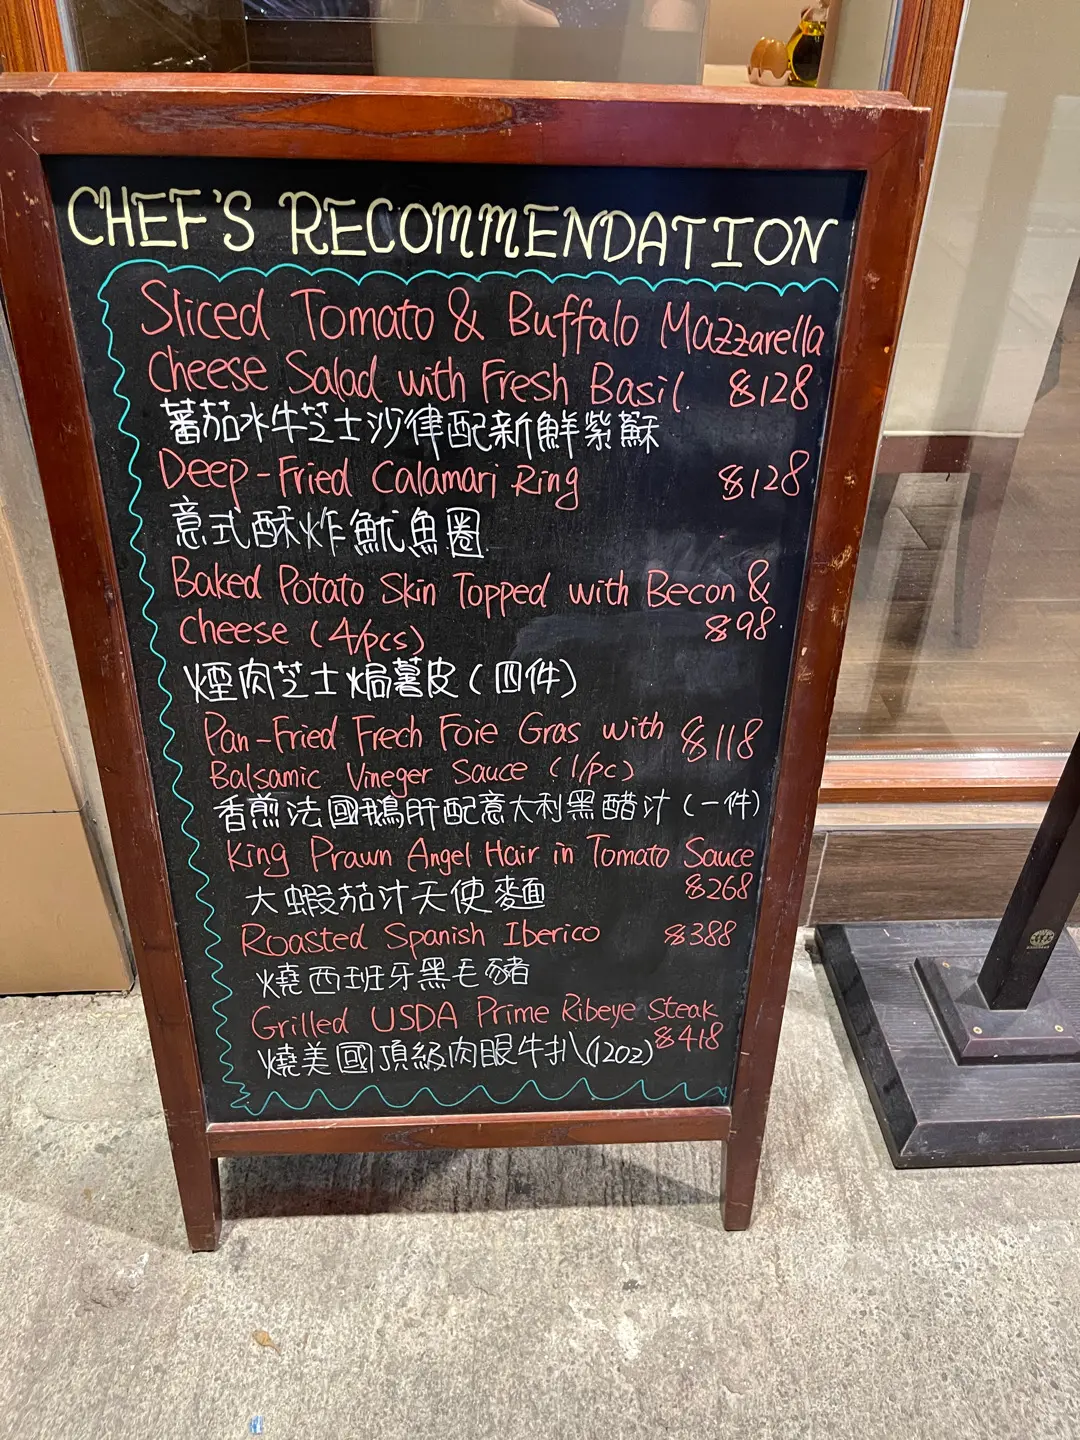 CHEF'S RECOMMENDATION
Sliced Tomato & Buffalo Mazzarella
Cheese Salad with Fresh Basil. $128
蕃茄水牛芝士沙律配新鮮紫蘇
Deep-Fried Calamari Ring $128
意式酥炸魷魚圈
Baked Potato Skin Topped with Becon &
Cheese (4/pcs) $98.
煙肉芝士焗薯皮(四件)
Pan-Fried Frech Foie Gras with $118
Balsamic Vineger Sauce (1/pc)
香煎法國鵝肝配意大利黑醋汁(一件)
King Prawn Angel Hair in Tomato Sauce
大蝦茄汁天使麵 $268
Roasted Spanish Iberico $388
燒西班牙黑毛豬
Grilled USDA Prime Ribeye Steak
燒美國頂級肉眼牛扒(12oz) $418